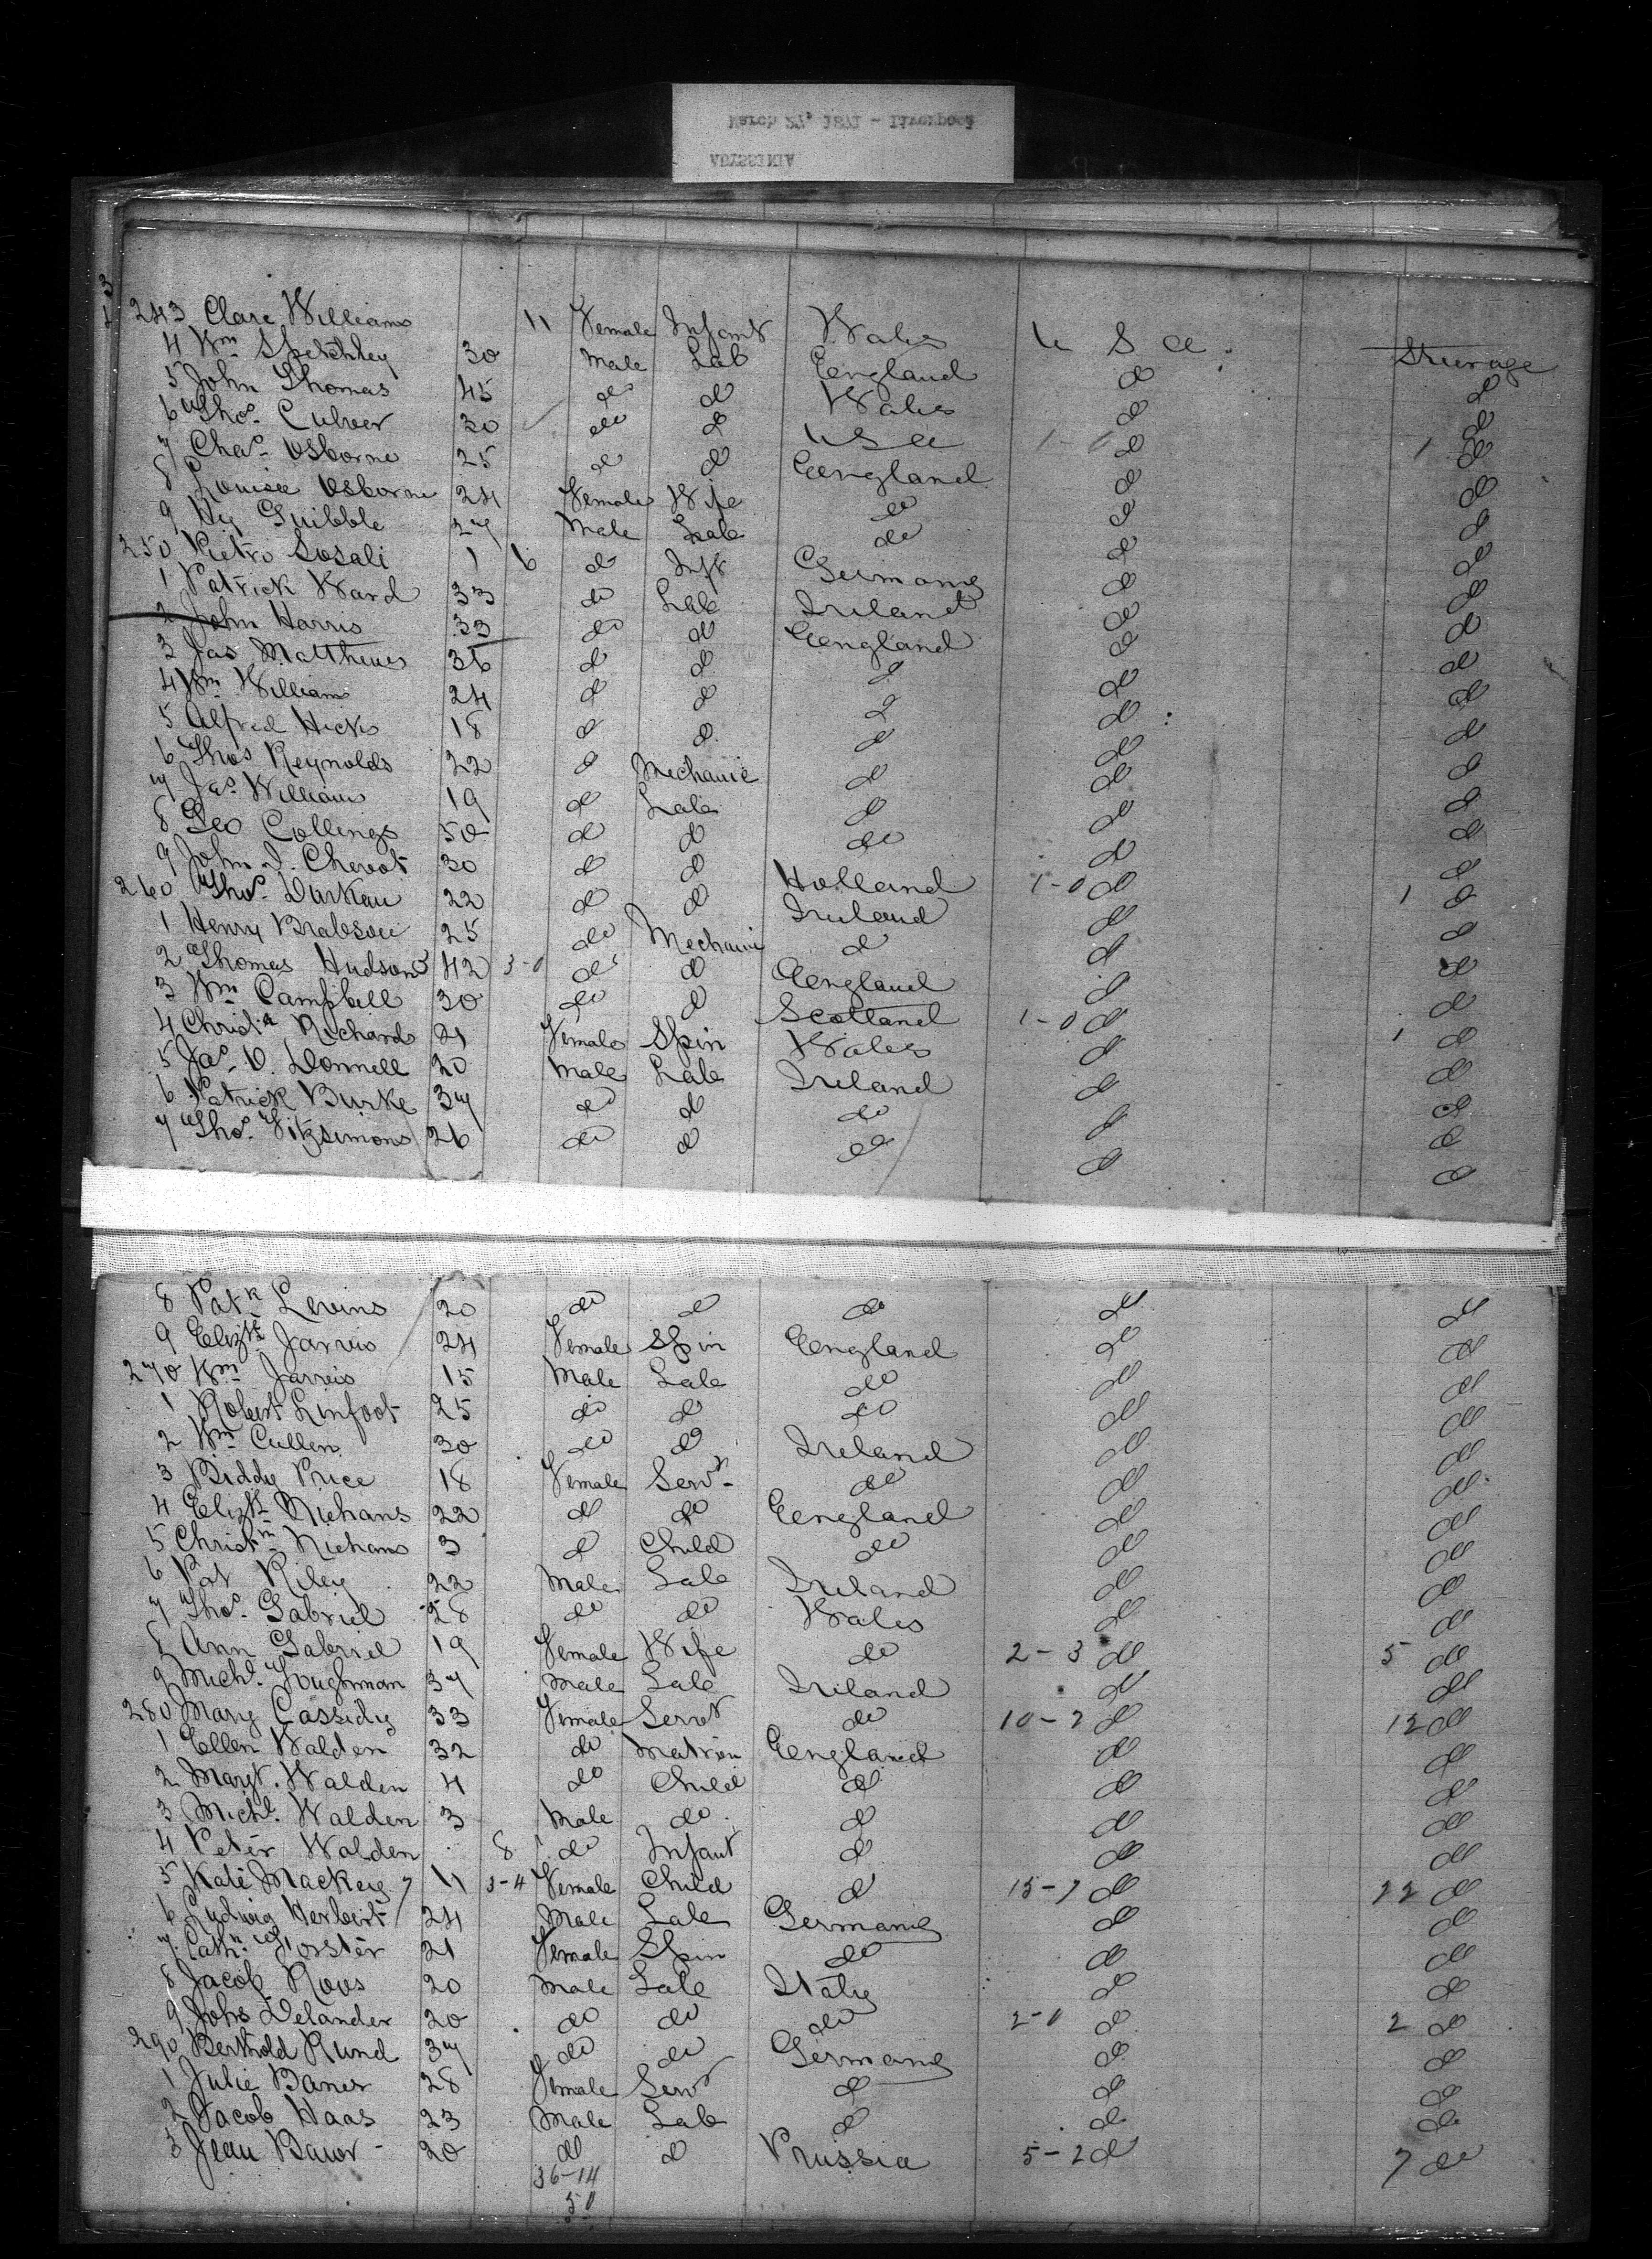 ABYSSINIA
March 27, 1871 - Liverpool
243 Clare Williams 11 Female Infant Wales U S a. Steerage
4 Wm Sketchley 30 Male Lab England do do
5 John Thomas 45 do do Wales do do
6 Thos. Culver 30 do do U S a 1-0 do 1 do
7 Chas. Osborne 25 do do England do do
8 Louisa Osborne 24 Female Wife do do do
9 Hy Gribble 27 Male Lab do do do
250 Pietro Sosali 1 6 do Inft Germany do do
1 Patrick Ward 33 do Lab Ireland do do
2 John Harris 33 do do England do do
3 Jas Matthews 36 do do do do do
4 Wm Williams 24 do do do do do
5 Alfred Hicks 18 do do do do do
6 Thos Reynolds 22 do Mechanic do do do
7 Jas. Williams 19 do Lab do do do
8 Geo Collings 50 do do do do do
9 John J. Chevot 30 do do Holland 1-0 do 1 do
260 Thos. Durkan 22 do do Ireland do do
1 Henry Brabson 25 do Mechanic do do do
2 Thomas Hudson 42 3-0 do do England do do
3 Wm Campbell 30 do do Scotland 1-0 do 1 do
4 Christa Richards 21 Female Spin Wales do do
5 Jas. O. Donnell 20 Male Lab Ireland do do
6 Patrick Burke 37 do do do do do
7 Thos. Fitzsimons 26 do do do do do
8 Patk Levins 20 do do do do do
9 Elizth Jarvis 24 Female Spin England do do
270 Wm Jarvis 15 Male Lab do do do
1 Robert Linfoot 25 do do do do do
2 Wm Cullen 30 do do Ireland do do
3 Biddy Price 18 Female Servt do do do
4 Elizth Nichans 22 do do England do do
5 Christn Nichans 3 do Child do do do
6 Pat Riley 22 Male Lab Ireland do do
7 Thos. Gabriel 28 do do Wales do do
8 Ann Gabriel 19 Female Wife do 2-3 do 5 do
9 Michl. Loughman 37 Male Lab Ireland do do
280 Mary Cassidy 33 Female Servt do 10-2 do 12 do
1 Ellen Walden 32 do Matron England do do
2 Margt. Walden 4 do Child do do do
3 Michl. Walden 3 Male do do do do
4 Peter Walden 8 do Infant do do do
5 Kate Mackey 7 11 3-4 Female Child do 15-7 do 22 do
6 Ludwig Herbert 24 Male Lab Germany do do
7 Cathn Forster 21 Female Spin do do do
8 Jacob Roos 20 Male Lab Italy do do
9 Johs Delander 20 do do do 2-0 do 2 do
290 Berthold Rund 37 do do Germany do do
1 Julie Baner 28 Female Servt do do do
2 Jacob Haas 23 Male Lab do do do
3 Jean Bawr 20 do do Prussia 5-2 do 7 do
36-14
50